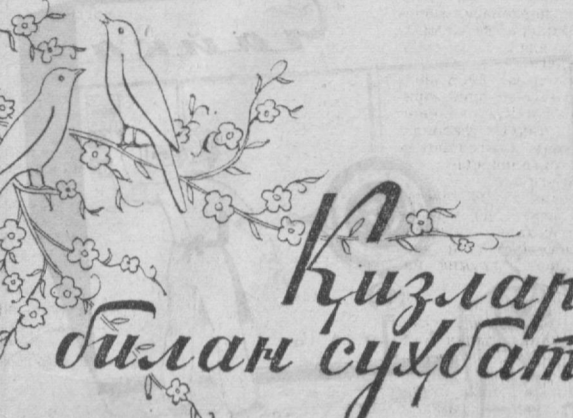 Қизлар
билан суҳбат